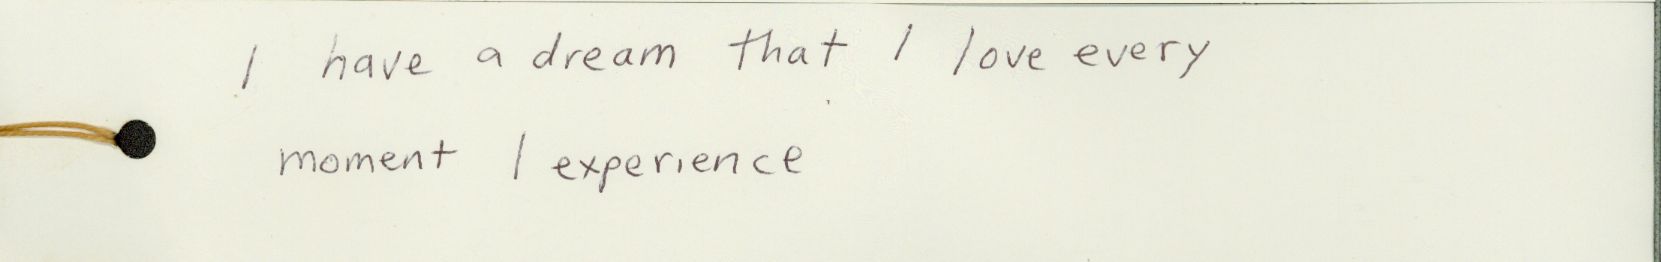 I have a dream that I love every
moment I experience